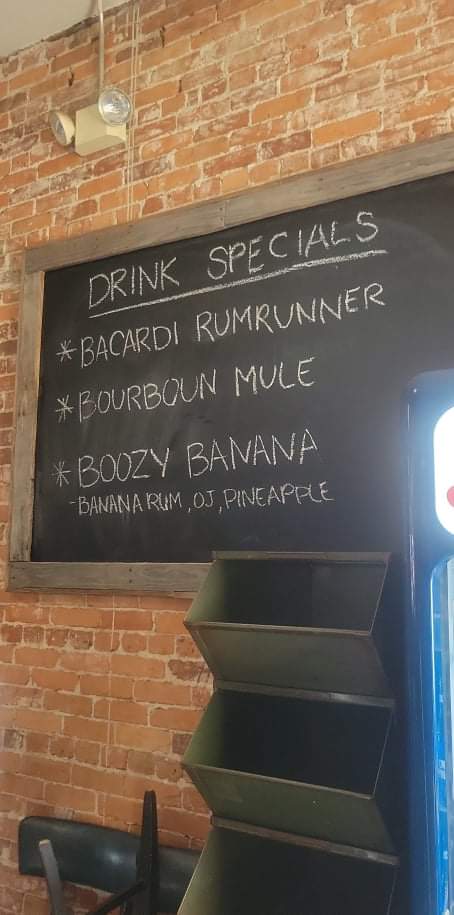 DRINK SPECIALS
* BACARDI RUMRUNNER
* BOURBOUN MULE
* BOOZY BANANA
- BANANA RUM, OJ, PINEAPPLE